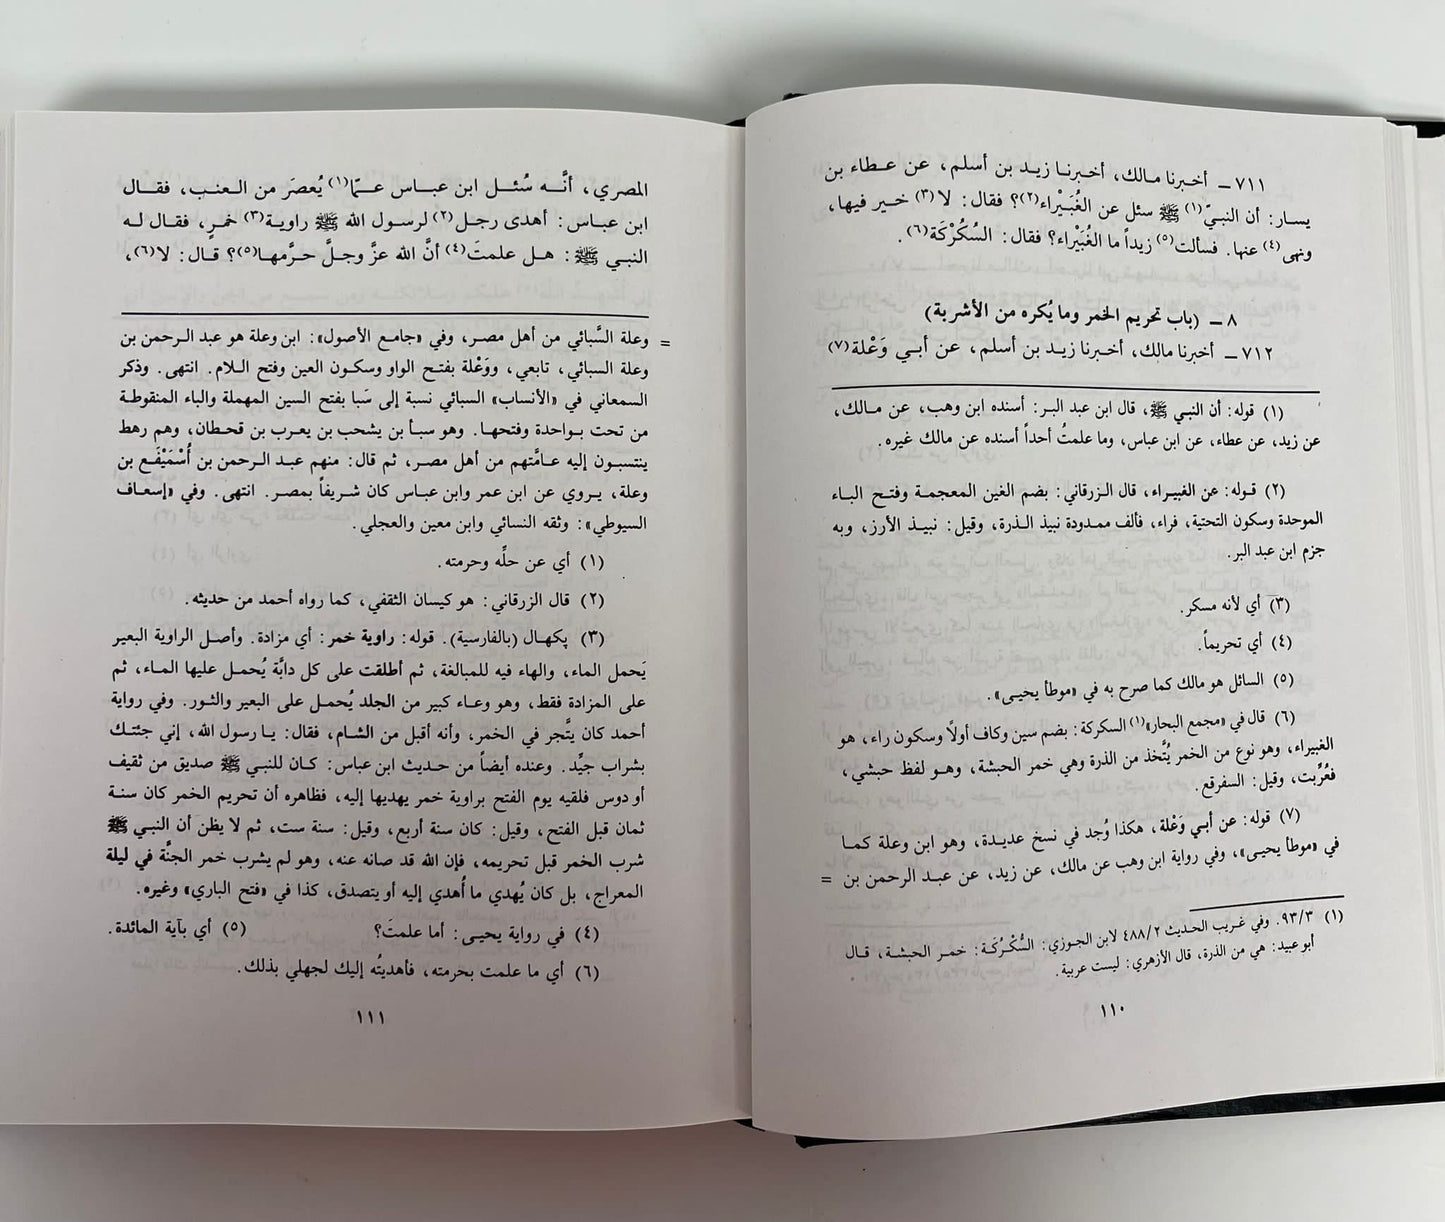 ٧١١ ــ أخبرنا مالك، أخبرنا زيد بن أسلم، عن عطاء بن
يسار: أن النبيّ(١) ﷺ سئل عن الغُبَيْراء(٢)؟ فقال: لا(٣) خير فيها،
ونهى(٤) عنها. فسألت(٥) زيداً ما الغُبَيْراء؟ فقال: السُكُرْكَة(٦).
٨ ــ (باب تحريم الخمر وما يُكره من الأشربة)
٧١٢ ــ أخبرنا مالك، أخبرنا زيد بن أسلم، عن أبي وَعْلة(٧)
(١) قوله: أن النبي ﷺ، قال ابن عبد البر: أسنده ابن وهب، عن مالك،
عن زيد، عن عطاء، عن ابن عباس، وما علمتُ أحداً أسنده عن مالك غيره.
(٢) قوله: عن الغبيراء، قال الزرقاني: بضم الغين المعجمة وفتح الباء
الموحدة وسكون التحتية، فراء، فألف ممدودة نبيذ الذرة، وقيل: نبيذ الأرز، وبه
جزم ابن عبد البر.
(٣) أي لأنه مسكر.
(٤) أي تحريماً.
(٥) السائل هو مالك كما صرح به في «موطأ يحيى».
(٦) قال في «مجمع البحار»(١) السكركة: بضم سين وكاف أولاً وسكون راء، هو
الغبيراء، وهو نوع من الخمر يُتَّخذ من الذرة وهي خمر الحبشة، وهو لفظ حبشي،
فعُرِّبت، وقيل: السفرقع.
(٧) قوله: عن أبي وَعْلة، هكذا وُجد في نسخ عديدة، وهو ابن وعلة كما
في «موطأ يحيى»، وفي رواية ابن وهب عن مالك، عن زيد، عن عبد الرحمن بن =
(١) ٩٣/٣. وفي غريب الحديث ٤٨٨/٢ لابن الجوزي: السُّكْرُكَة: خمر الحبشة، قال
أبو عبيد: هي من الذرة، قال الأزهري: ليست عربية.
١١٠
المصري، أنَّه سُئل ابن عباس عمّا(١) يُعصَر من العنب، فقال
ابن عباس: أهدى رجل(٢) لرسول الله ﷺ راوية(٣) خمرٍ، فقال له
النبي ﷺ: هل علمتَ(٤) أنَّ الله عزَّ وجلَّ حرَّمها(٥)؟ قال: لا(٦)،
= وعلة السَّبائي من أهل مصر، وفي «جامع الأصول»: ابن وعلة هو عبد الرحمن بن
وعلة السبائي، تابعي، ووَعْلة بفتح الواو وسكون العين وفتح اللام. انتهى. وذكر
السمعاني في «الأنساب» السبائي نسبة إلى سَبا بفتح السين المهملة والباء المنقوطة
من تحت بواحدة وفتحها. وهو سبأ بن يشحب بن يعرب بن قحطان، وهم رهط
ينتسبون إليه عامَّتهم من أهل مصر، ثم قال: منهم عبد الرحمن بن أُسْمَيْفَع بن
وعلة، يروي عن ابن عمر وابن عباس كان شريفاً بمصر. انتهى. وفي «إسعاف
السيوطي»: وثقه النسائي وابن معين والعجلي.
(١) أي عن حلِّه وحرمته.
(٢) قال الزرقاني: هو كيسان الثقفي، كما رواه أحمد من حديثه.
(٣) پكهال (بالفارسية). قوله: راوية خمر: أي مزادة. وأصل الراوية البعير
يَحمل الماء، والهاء فيه للمبالغة، ثم أطلقت على كل دابَّة يُحمل عليها الماء، ثم
على المزادة فقط، وهو وعاء كبير من الجلد يُحمل على البعير والثور. وفي رواية
أحمد كان يتَّجر في الخمر، وأنه أقبل من الشام، فقال: يا رسول الله، إني جئتك
بشراب جيِّد. وعنده أيضاً من حديث ابن عباس: كان للنبي ﷺ صديق من ثقيف
أو دوس فلقيه يوم الفتح براوية خمر يهديها إليه، فظاهره أن تحريم الخمر كان سنة
ثمان قبل الفتح، وقيل: كان سنة أربع، وقيل: سنة ست، ثم لا يظن أن النبي ﷺ
شرب الخمر قبل تحريمه، فإن الله قد صانه عنه، وهو لم يشرب خمر الجنَّة في ليلة
المعراج، بل كان يُهدي ما أُهدي إليه أو يتصدق، كذا في «فتح الباري» وغيره.
(٤) في رواية يحيى: أما علمتَ؟ (٥) أي بآية المائدة.
(٦) أي ما علمت بحرمته، فأهديتُه إليك لجهلي بذلك.
١١١